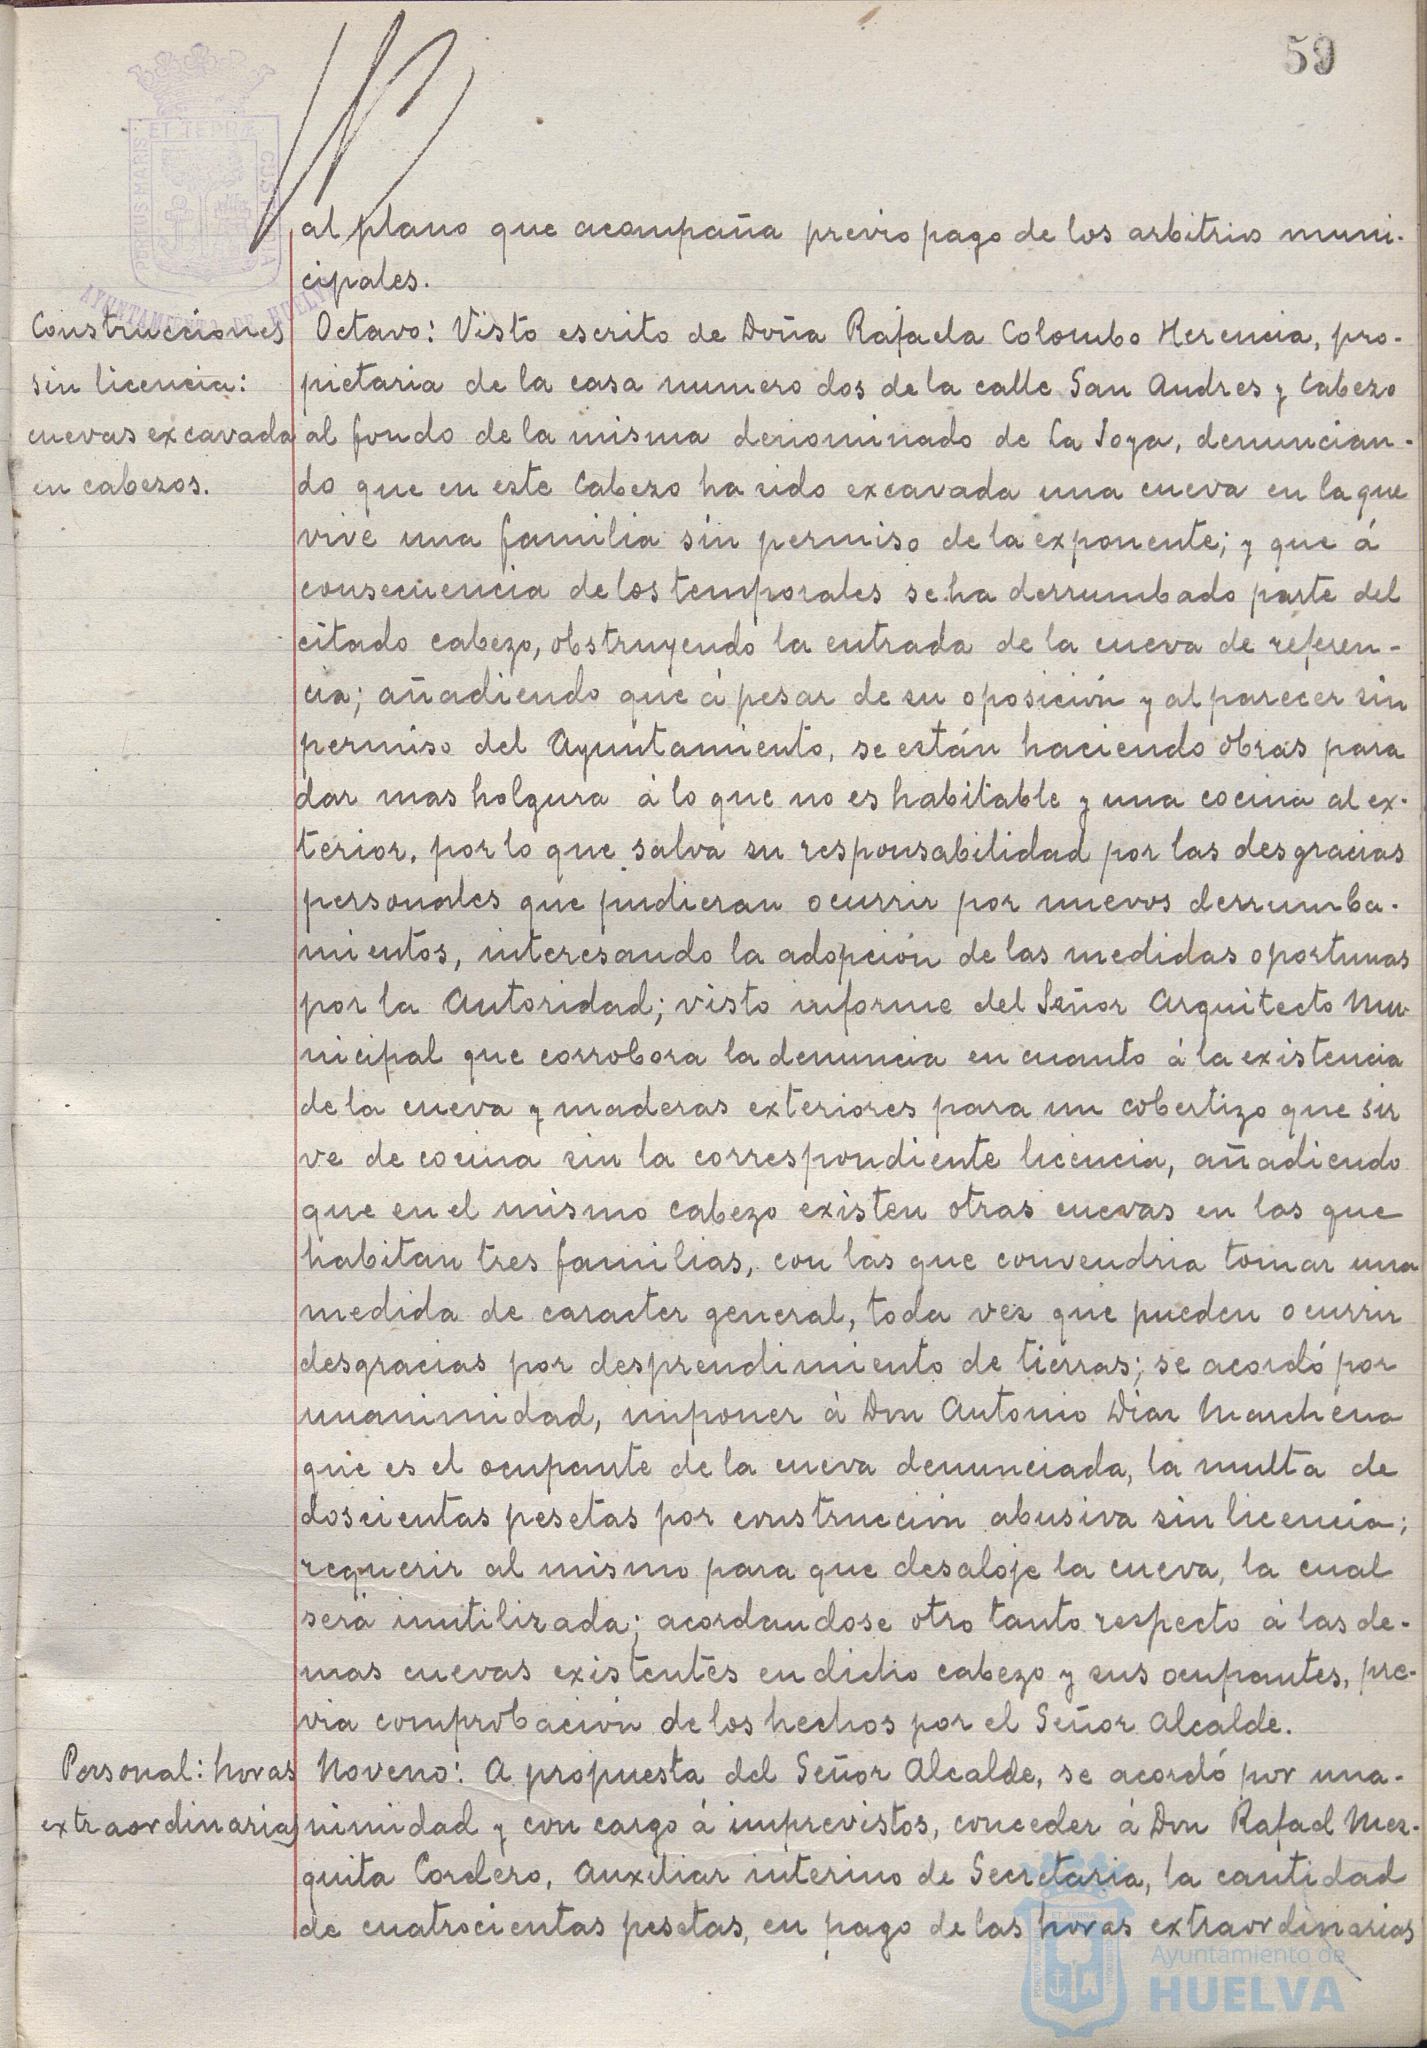 59
PORTUS MARIS ET TERRÆ CUSTODIA
AYUNTAMIENTO DE HUELVA
al plano que acompaña previo pago de los arbitrios muni-
cipales.
Construcciones
sin licencia:
cuevas excavada
en cabezos.
Octavo: Visto escrito de Doña Rafaela Colombo Herencia, pro-
pietaria de la casa numero dos de la calle San Andres y Cabezo
al fondo de la misma denominado de la Joya, denuncian-
do que en este Cabezo ha sido excavada una cueva en la que
vive una familia sin permiso de la exponente; y que á
consecuencia de los temporales se ha derrumbado parte del
citado cabezo, obstruyendo la entrada de la cueva de referen-
cia; añadiendo que á pesar de su oposición y al parecer sin
permiso del Ayuntamiento, se están haciendo obras para
dar mas holgura á lo que no es habitable y una cocina al ex-
terior, por lo que salva su responsabilidad por las desgracias
personales que pudieran ocurrir por nuevos derrumba-
mientos, interesando la adopción de las medidas oportunas
por la Autoridad; visto informe del Señor Arquitecto Mu-
nicipal que corrobora la denuncia en cuanto á la existencia
de la cueva y maderas exteriores para un cobertizo que sir
ve de cocina sin la correspondiente licencia, añadiendo
que en el mismo cabezo existen otras cuevas en las que
habitan tres familias, con las que convendria tomar una
medida de caracter general, toda vez que pueden ocurrir
desgracias por desprendimiento de tierras; se acordó por
unanimidad, imponer á Don Antonio Diaz Marchena
que es el ocupante de la cueva denunciada, la multa de
doscientas pesetas por construcción abusiva sin licencia;
requerir al mismo para que desaloje la cueva, la cual
será inutilizada; acordandose otro tanto respecto á las de-
mas cuevas existentes en dicho cabezo y sus ocupantes, pre-
via comprobación de los hechos por el Señor Alcalde.
Personal: horas
extraordinarias
Noveno: A propuesta del Señor Alcalde, se acordó por una-
nimidad y con cargo á imprevistos, conceder á Don Rafael Mez-
quita Cordero, Auxiliar interino de Secretaria, la cantidad
de cuatrocientas pesetas, en pago de las horas extraordinarias
Ayuntamiento de
HUELVA